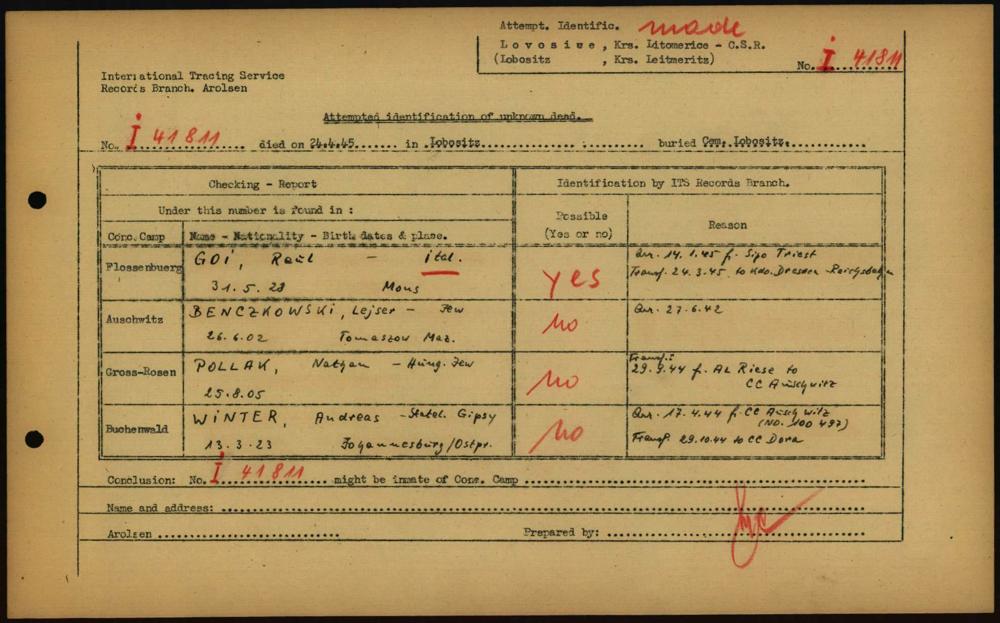 Attempt. Identific. made
Lovosiwe, Krs. Litomerice - C.S.R.
(Lobositz , Krs. Leitmeritz)
No. I 41811
International Tracing Service
Records Branch. Arolsen
Attempted identification of unknown dead.
No. I 41811 died on 24.4.45 in Lobositz buried Cem. Lobositz.
Checking - Report
Identification by ITS Records Branch.
Under this number is found in :
Possible (Yes or no)
Reason
Conc. Camp
Name - Nationality - Birth dates & place.
Flossenbuerg
GOI, Raul - ital.
31.5.28 Mons
yes
Arr. 14.1.45 f. Sipo Triest
Transf. 24.3.45 to Kdo. Dresden - Reichsbahn
Auschwitz
BENCZKOWSKI, Lejser - Jew
26.6.02 Tomaszow Maz.
no
Arr. 27.6.42
Gross-Rosen
POLLAK, Nathan - Hung. Jew
25.8.05
no
Transf.:
29.9.44 f. AL Riese to
CC Auschwitz
Buchenwald
WINTER, Andreas - Statel. Gipsy
13.3.23 Johannesburg/Ostpr.
no
Arr. 17.4.44 f. CC Auschwitz
(NO. 100 497)
Transf. 29.10.44 to CC Dora
Conclusion: No. I 41811 might be inmate of Conc. Camp
Name and address:
Arolsen
Prepared by: